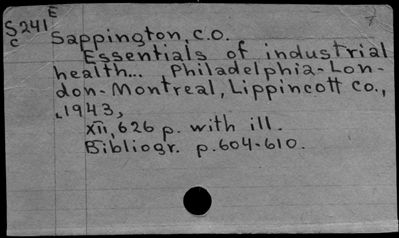 E
S241
c
Sappington, C.O.
Essentials of industrial
health... Philadelphia-Lon-
don-Montreal, Lippincott Co.,
1943,
XII, 626 p. with ill.
Bibliogr. p. 604-610.